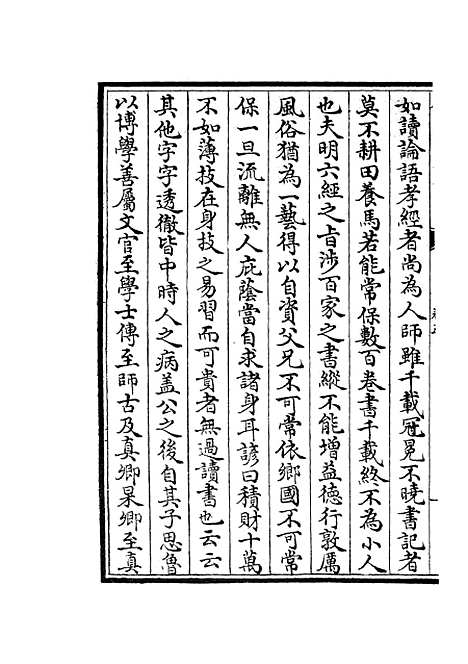 如讀論語孝經者尚為人師雖千載冠冕不曉書記者
莫不耕田養馬若能常保數百卷書千載終不為小人
也夫明六經之旨涉百家之書縱不能增益徳行敦厲
風俗猶為一藝得以自資父兄不可常依鄉國不可常
保一旦流離無人庇蔭當自求諸身耳諺曰積財十萬
不如薄技在身技之易習而可貴者無過讀書也云云
其他字字透徹皆中時人之病盖公之後自其子思魯
以博學善屬文官至學士傳至師古及真卿杲卿至真